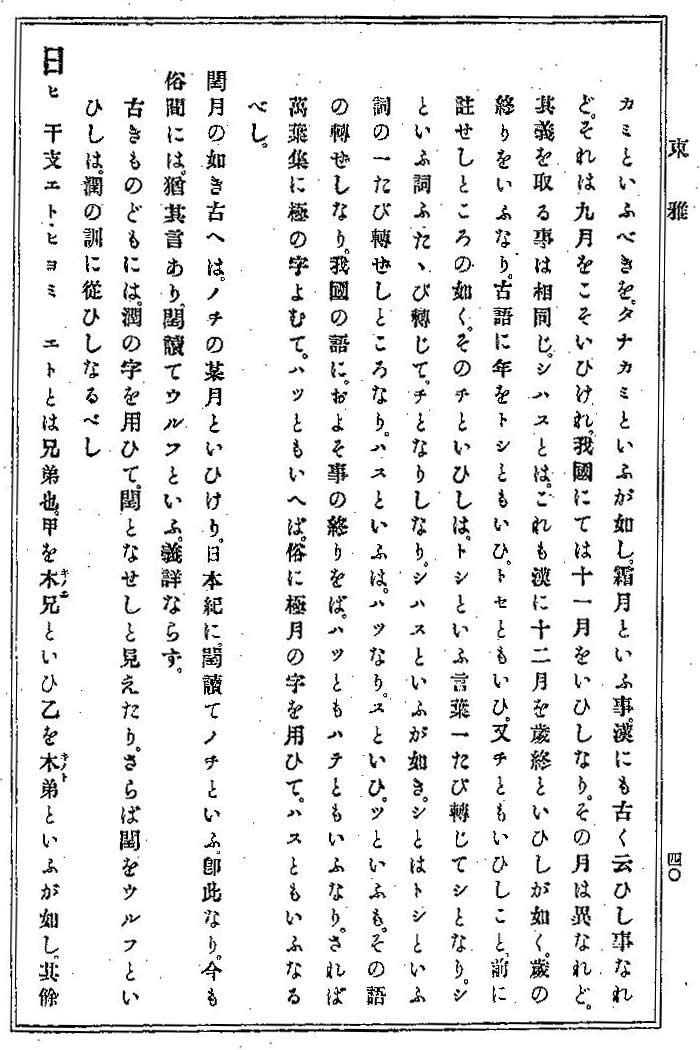 東雅
四〇
カミといふべきを、タナカミといふが如し。霜月といふ事、漢にも古く云ひし事なれ
ど、それは九月をこそいひけれ、我國にては十一月をいひしなり。その月は異なれど、
其義を取る事は相同じ。シハスとは、これも漢に十二月を歲終といひしが如く、歲の
終りをいふなり。古語に年をトシともいひ、トセともいひ、又チともいひしこと、前に
註せしところの如く、そのチといひしは、トシといふ言葉一たび轉じてシとなり。シ
といふ詞ふたゝび轉じて、チとなりしなり。シハスといふが如き、シとはトシといふ
詞の一たび轉ぜしところなり。ハスといふは、ハツなり。スといひ、ツといふも、その語
の轉ぜしなり。我國の語に、およそ事の終りをば、ハツともハテともいふなり。されば
萬葉集に極の字よむて、ハツともいへば、俗に極月の字を用ひて、ハスともいふなる
べし。
閏月の如き古へは、ノチの某月といひけり。日本紀に、閏讀てノチといふ、卽此なり。今も
俗間には、猶其言あり、閏讀てウルフといふ、義詳ならず。
古きものどもには、潤の字を用ひて、閏となせしと見えたり。さらば閏をウルフとい
ひしは、潤の訓に從ひしなるべし
日ヒ 干支エト・ヒヨミ エトとは兄弟也。甲を木兄キノエといひ乙を木弟キノトといふが如し。其餘